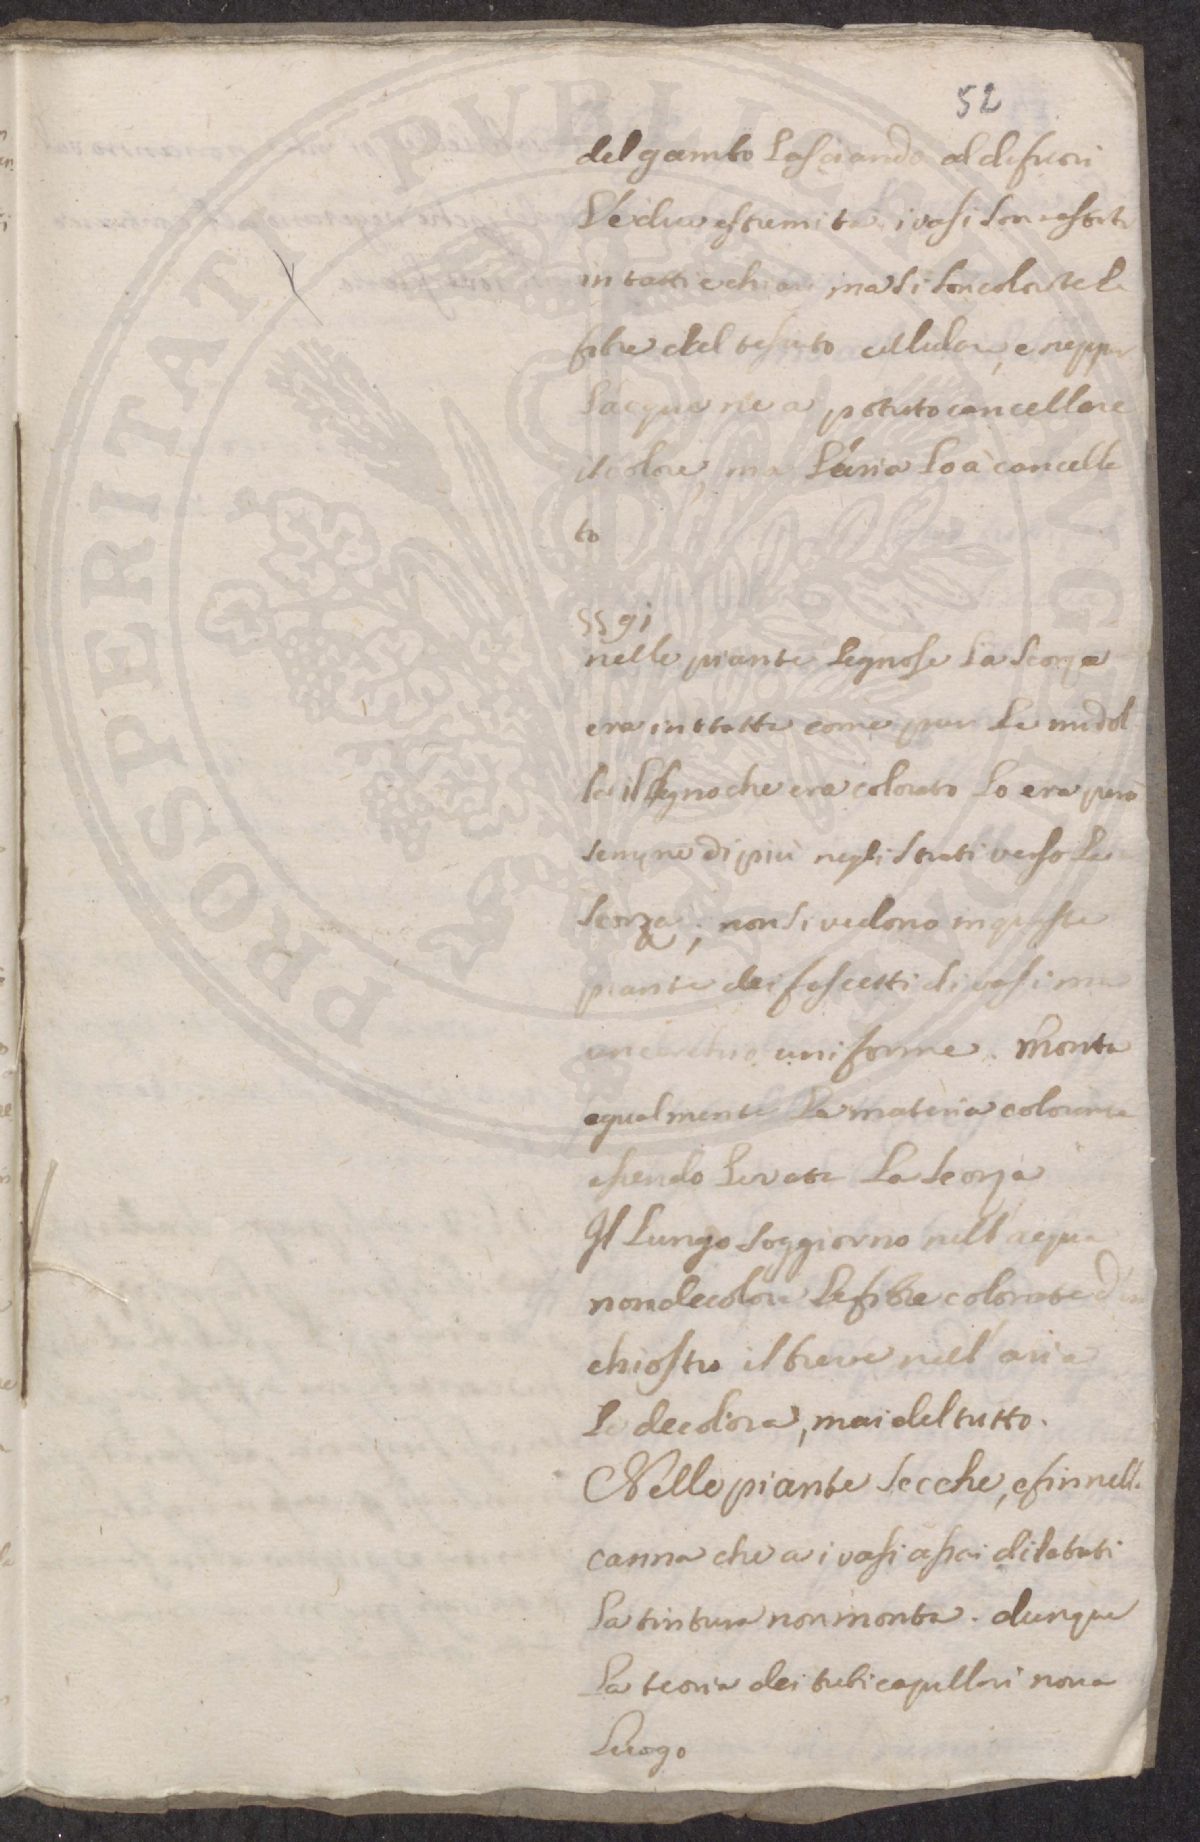 52
del gambo lasciando al difuori
le due estremità. i vasi son restati
intatti e chiari ma si son colorate le
fibre del tessuto cellulare, e neppur
l'acqua ne a potuto cancellare
il colore, ma l'aria lo à cancella
to
§§ 91
nelle piante legnose la scorza
era intatta come pur la midol
la il legno che era colorato lo era però
sempre di più negli strati verso la
scorza; non si vedono in queste
piante dei fascetti di vasi ma
un cerchio uniforme. Monta
egualmente la materia colorante
essendo levata la scorza
Il lungo soggiorno nell'acqua
non decolora le fibre colorate d'in
chiostro il breve nell'aria
le decolora, mai del tutto.
Nelle piante secche, e fin nella
canna che a i vasi assai dilatati
la tintura non monta. dunque
la teoria dei tubi capillari non a
luogo
PROSPERITATI PVBLICAE